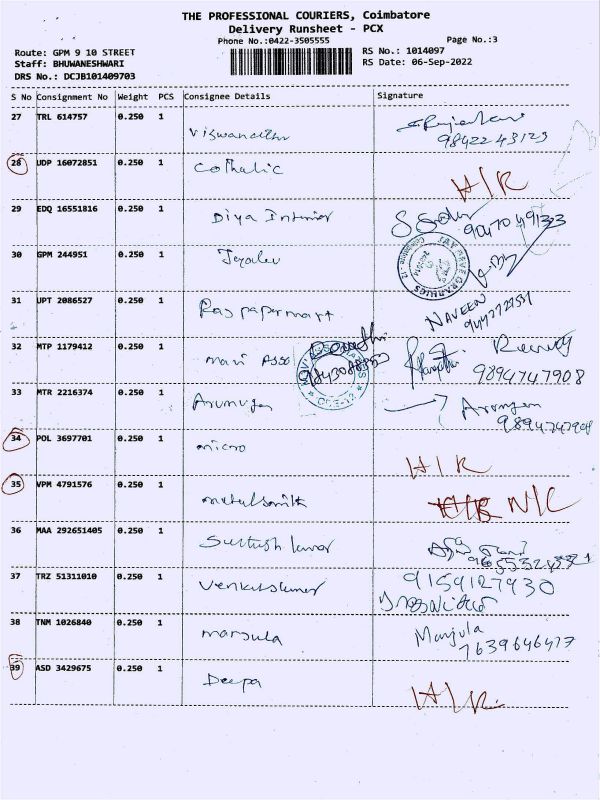 THE PROFESSIONAL COURIERS, Coimbatore
Delivery Runsheet - PCX
Phone No.:0422-3505555
Page No.:3
Route: GPM 9 10 STREET
RS No.: 1014097
Staff: BHUWANESHWARI
RS Date: 06-Sep-2022
DRS No.: DCJB101409703
S No Consignment No Weight PCS Consignee Details Signature
27 TRL 614757 0.250 1 Viswanathn
9842243123
28 UDP 16072851 0.250 1 Cothalic
H/R
29 EDQ 16551816 0.250 1 Diya Interior
30 GPM 244951 0.250 1
31 UPT 2086527 0.250 1 Raj papermart NAVEEN
32 MTP 1179412 0.250 1 mavi Asso
9894747908
33 MTR 2216374 0.250 1 Arumugan
9894747908
34 POL 3697701 0.250 1 micro
H/R
35 VPM 4791576 0.250 1
N/C
36 MAA 292651405 0.250 1
37 TRZ 51311010 0.250 1 Venkatskumar 9159127930
38 TNM 1026840 0.250 1 marsula Manjula
7639646417
39 ASD 3429675 0.250 1 Deepa
H/R